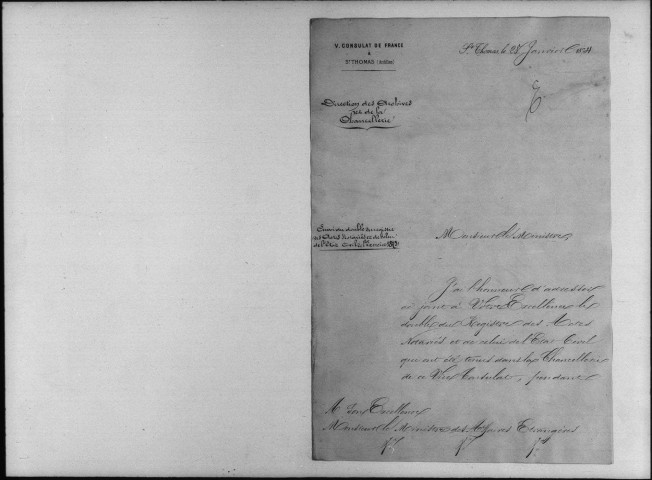 V. CONSULAT DE FRANCE
À
ST THOMAS (Antilles)
St Thomas, le 28 Janvier 1874
Direction des Archives
et de la
Chancellerie
Envoi du double du registre
des Actes Notariés et de celui
de l'Etat Civil
Monsieur le Ministre,
J'ai l'honneur d'adresser
ci joint à Votre Excellence le
double du Registre des Actes
Notariés et de celui de l'Etat Civil
qui ont été tenus dans la Chancellerie
de ce Vice Consulat, pendant
A Son Excellence
Monsieur le Ministre des Affaires Etrangères